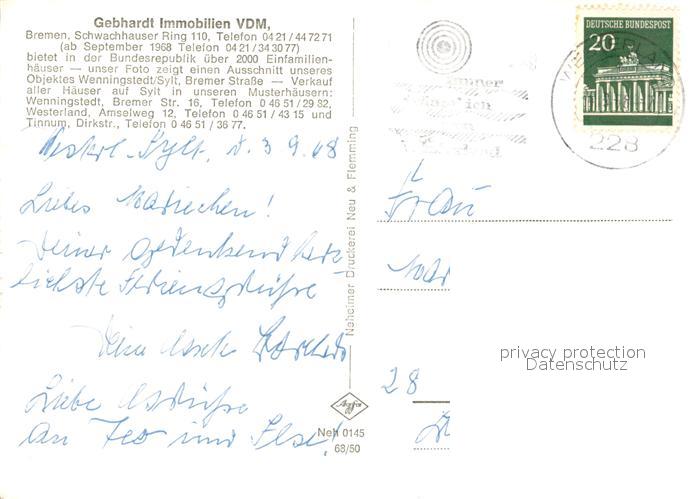 Gebhardt Immobilien VDM,
Bremen, Schwachhauser Ring 110, Telefon 04 21 / 44 72 71
(ab September 1968 Telefon 04 21 / 34 30 77)
bietet in der Bundesrepublik über 2000 Einfamilien-
häuser — unser Foto zeigt einen Ausschnitt unseres
Objektes Wenningstedt/Sylt, Bremer Straße — Verkauf
aller Häuser auf Sylt in unseren Musterhäusern:
Wenningstedt, Bremer Str. 16, Telefon 0 46 51 / 29 82,
Westerland, Amselweg 12, Telefon 0 46 51 / 43 15 und
Tinnum, Dirkstr., Telefon 0 46 51 / 36 77.
Sylt, d. 3 9. 68
Liebes Mariechen!
Deiner gedenkend herz-
lichste Feriengrüße
Deine
Liebe Grüße
an Leo und Else!
Neheimer Druckerei Neu & Flemming
Agfa
Neh 0145
68/50
DEUTSCHE BUNDESPOST
20
228
Frau
28
privacy protection
Datenschutz